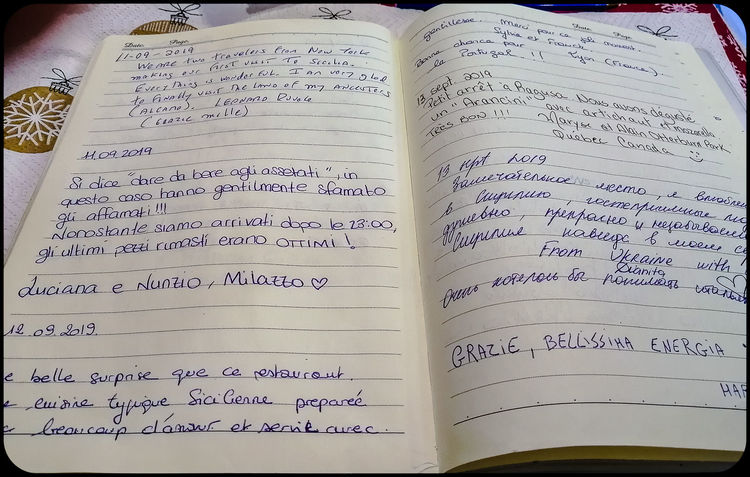 Date Page
11-09-2019
We are two travelers from New York
making our first visit to Sicilia.
Everything is wonderful. I am very glad
to finally visit the land of my ancestors
(Alcamo). Leonard
(Grazie mille)
11.09.2019
Si dice "dare da bere agli assetati", in
questo caso hanno gentilmente sfamato
gli affamati!!!
Nonostante siamo arrivati dopo le 23:00,
gli ultimi pezzi rimasti erano OTTIMI!
Luciana e Nunzio, Milazzo ♡
12.09.2019
e belle surprise que ce restaurant.
cuisine typique Sicilienne preparée
beaucoup d'amour et servie avec
Date Page
gentillesse. Merci pour ce
Sylvie et Franck.
Bonne chance pour Lyon (France).
la Portugal!!
13 sept. 2019
Petit arrêt à Ragusa. Nous avons dégusté
un "Arancini" avec artichaut et mozzarella
TRÈS BON!!!
Maryse et Alain Otterburn Park
Québec Canada
13 2019
Замечательное место, я
в Сицилию, гостеприимные
душевно, прекрасно и
Сицилия навсегда в моем
From Ukraine with
Очень хотелось бы
GRAZIE, BELLISSIMA ENERGIA